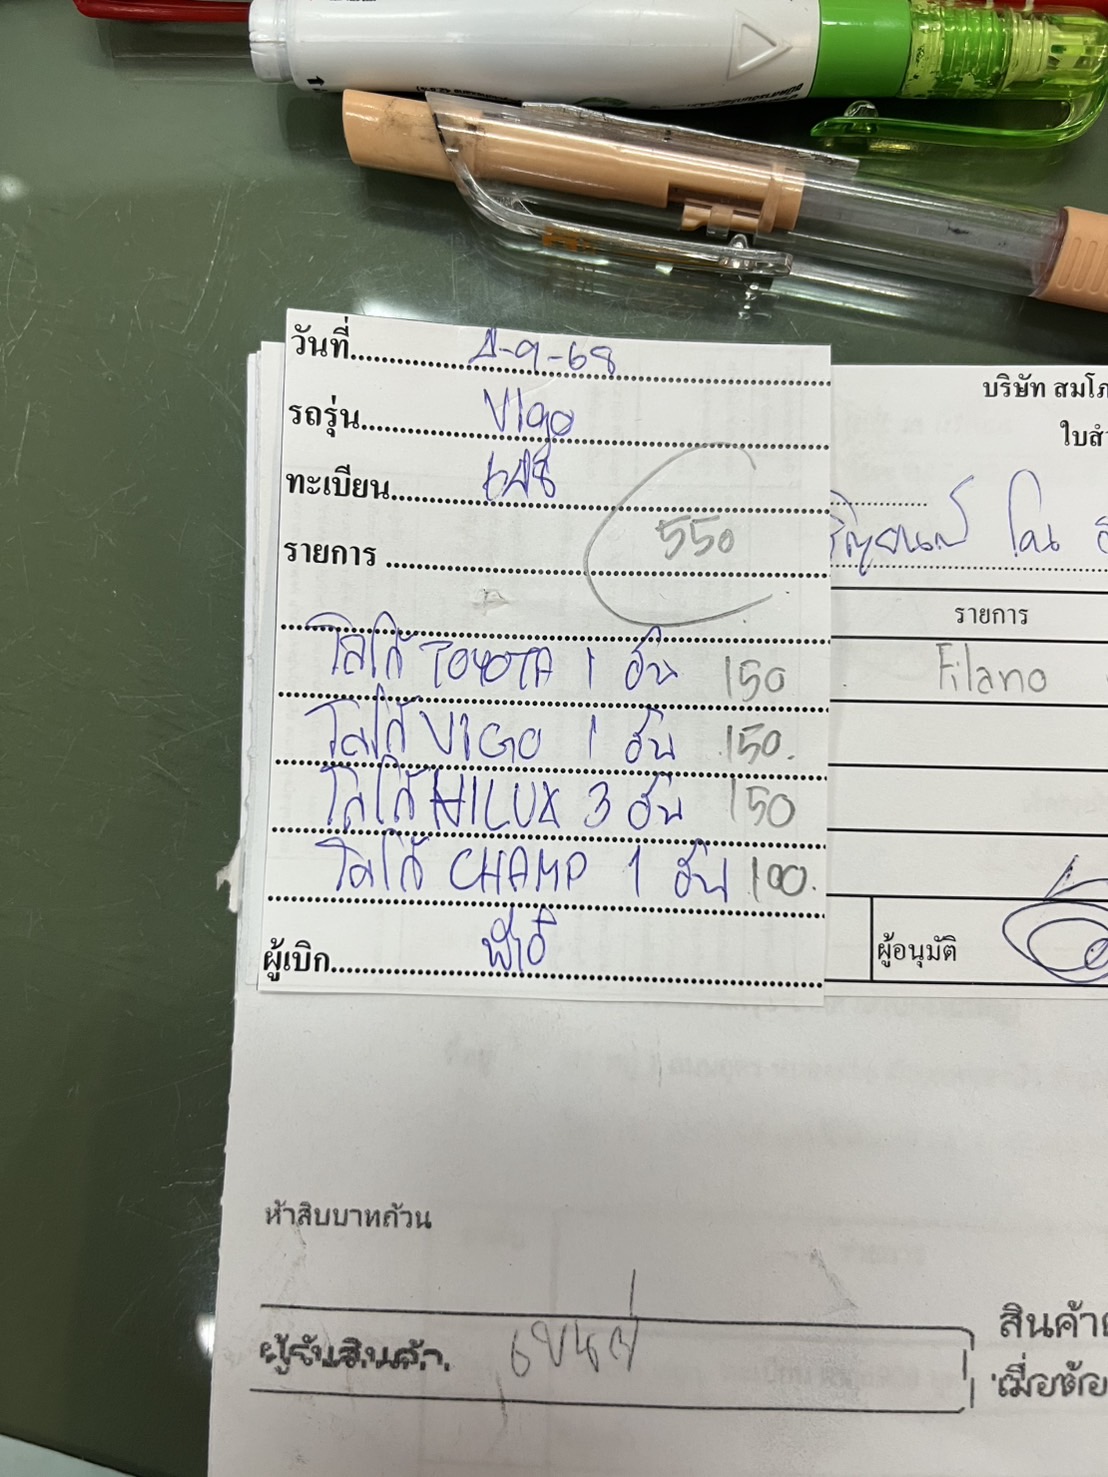 วันที่ 4-9-68
รถรุ่น VIgo
ทะเบียน 648
รายการ
550
โลโก้ TOYOTA 1 อัน 150
โลโก้ VIGO 1 อัน 150.
โลโก้ HILUX 3 อัน 150
โลโก้ CHAMP 1 อัน 100.
ผู้เบิก
บริษัท สมโภ
ใบสำ
โดน
รายการ
Filano
ผู้อนุมัติ
ห้าสิบบาทถ้วน
ผู้รับสินค้า
สินค้า
เมื่อต้อ